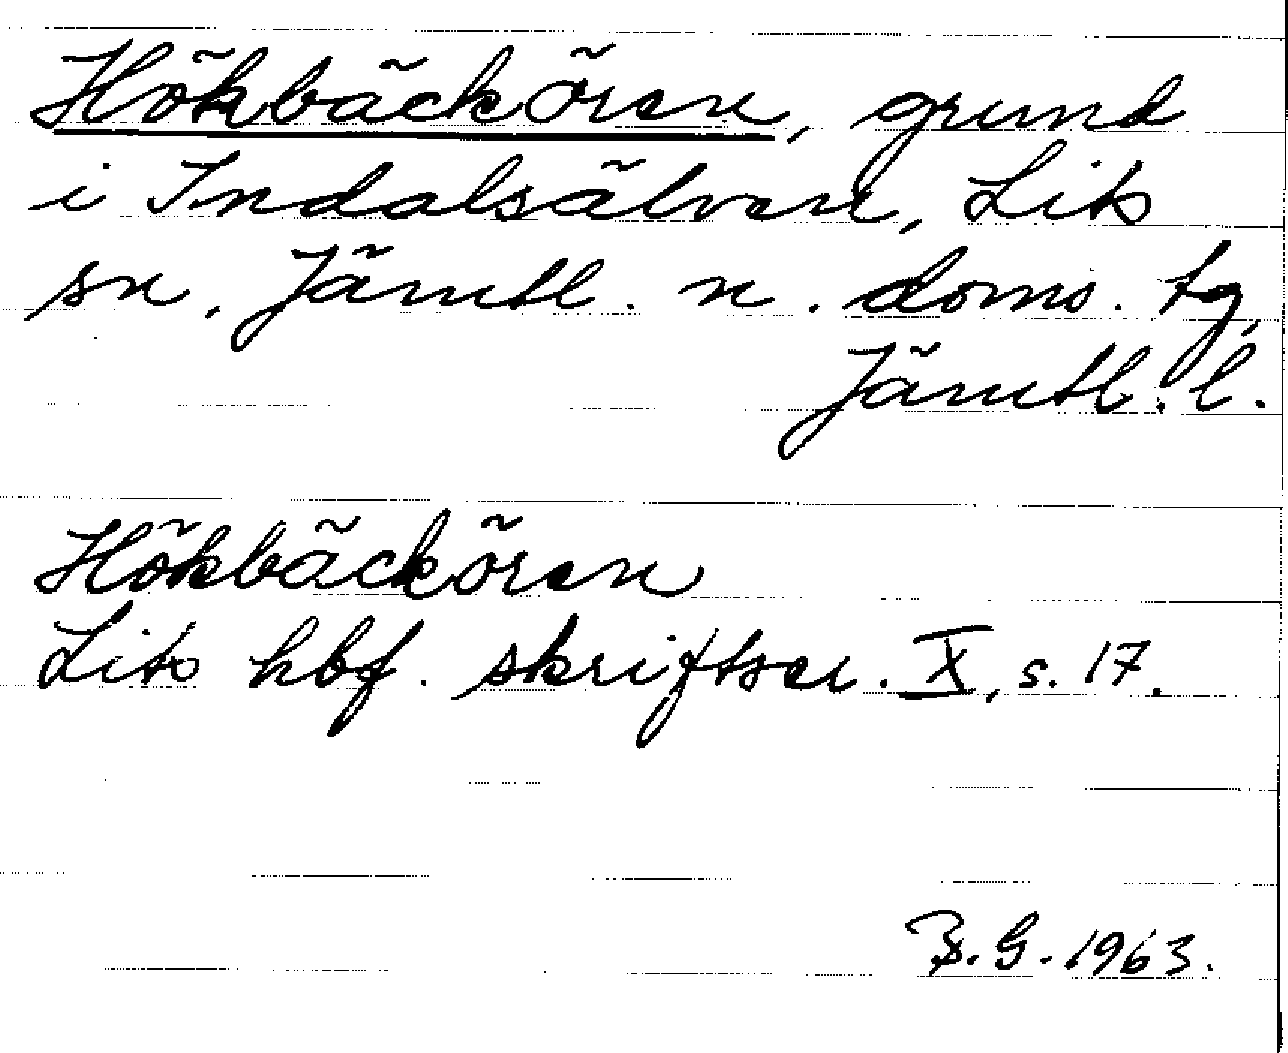 Hökbäckören, grund
i Indalsälven, Lits
sn, Jämtl. n. doms. tg,
Jämtl. l.
Hökbäckören
Lits hbf. skriftser. X, s. 17.
B.G. 1963.